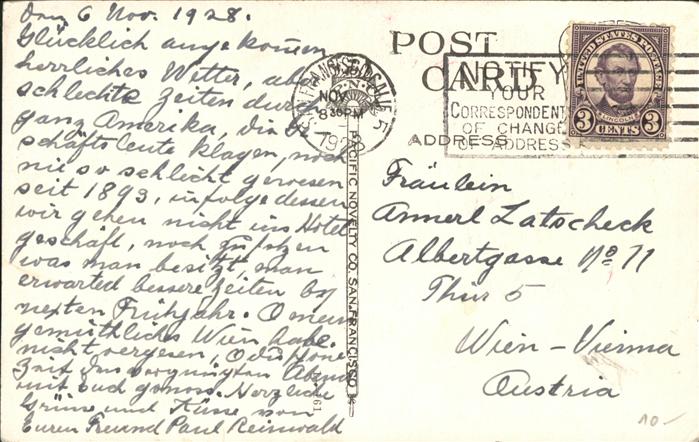 Den 6 Nov. 1928.
Glücklich angekomen
herrliches Wetter, aber
schlechte Zeiten durch
ganz Amerika, die Ge
schäftsleute klagen, noch
nie so schlecht gewesen
seit 1893, infolgedessen
wir gehen nicht ins Hotel
geschäft, noch
was man besitzt, man
erwarted bessere Zeiten by
nexten Frühjahr. O mein
gemüthliches Wien habe
nicht vergesen, O die schöne
Zeit den vergnügten Abend
mit Euch genoss. Herzliche
Grüsse und Küsse von
Euren Freund Paul Reinwald
POST
CARD
ADDRESS
SAN FRANCISCO, CALIF.
NOV 7
8 30 PM
192
5
NOTIFY
YOUR
CORRESPONDENTS
OF CHANGE
OF ADDRESS
UNITED STATES POSTAGE
LINCOLN
3 CENTS 3
PACIFIC NOVELTY CO. SAN FRANCISCO
61
Fräulein
Annerl Latscheck
Albertgasse No 11
Thür 5
Wien – Vienna
Austria
10.-